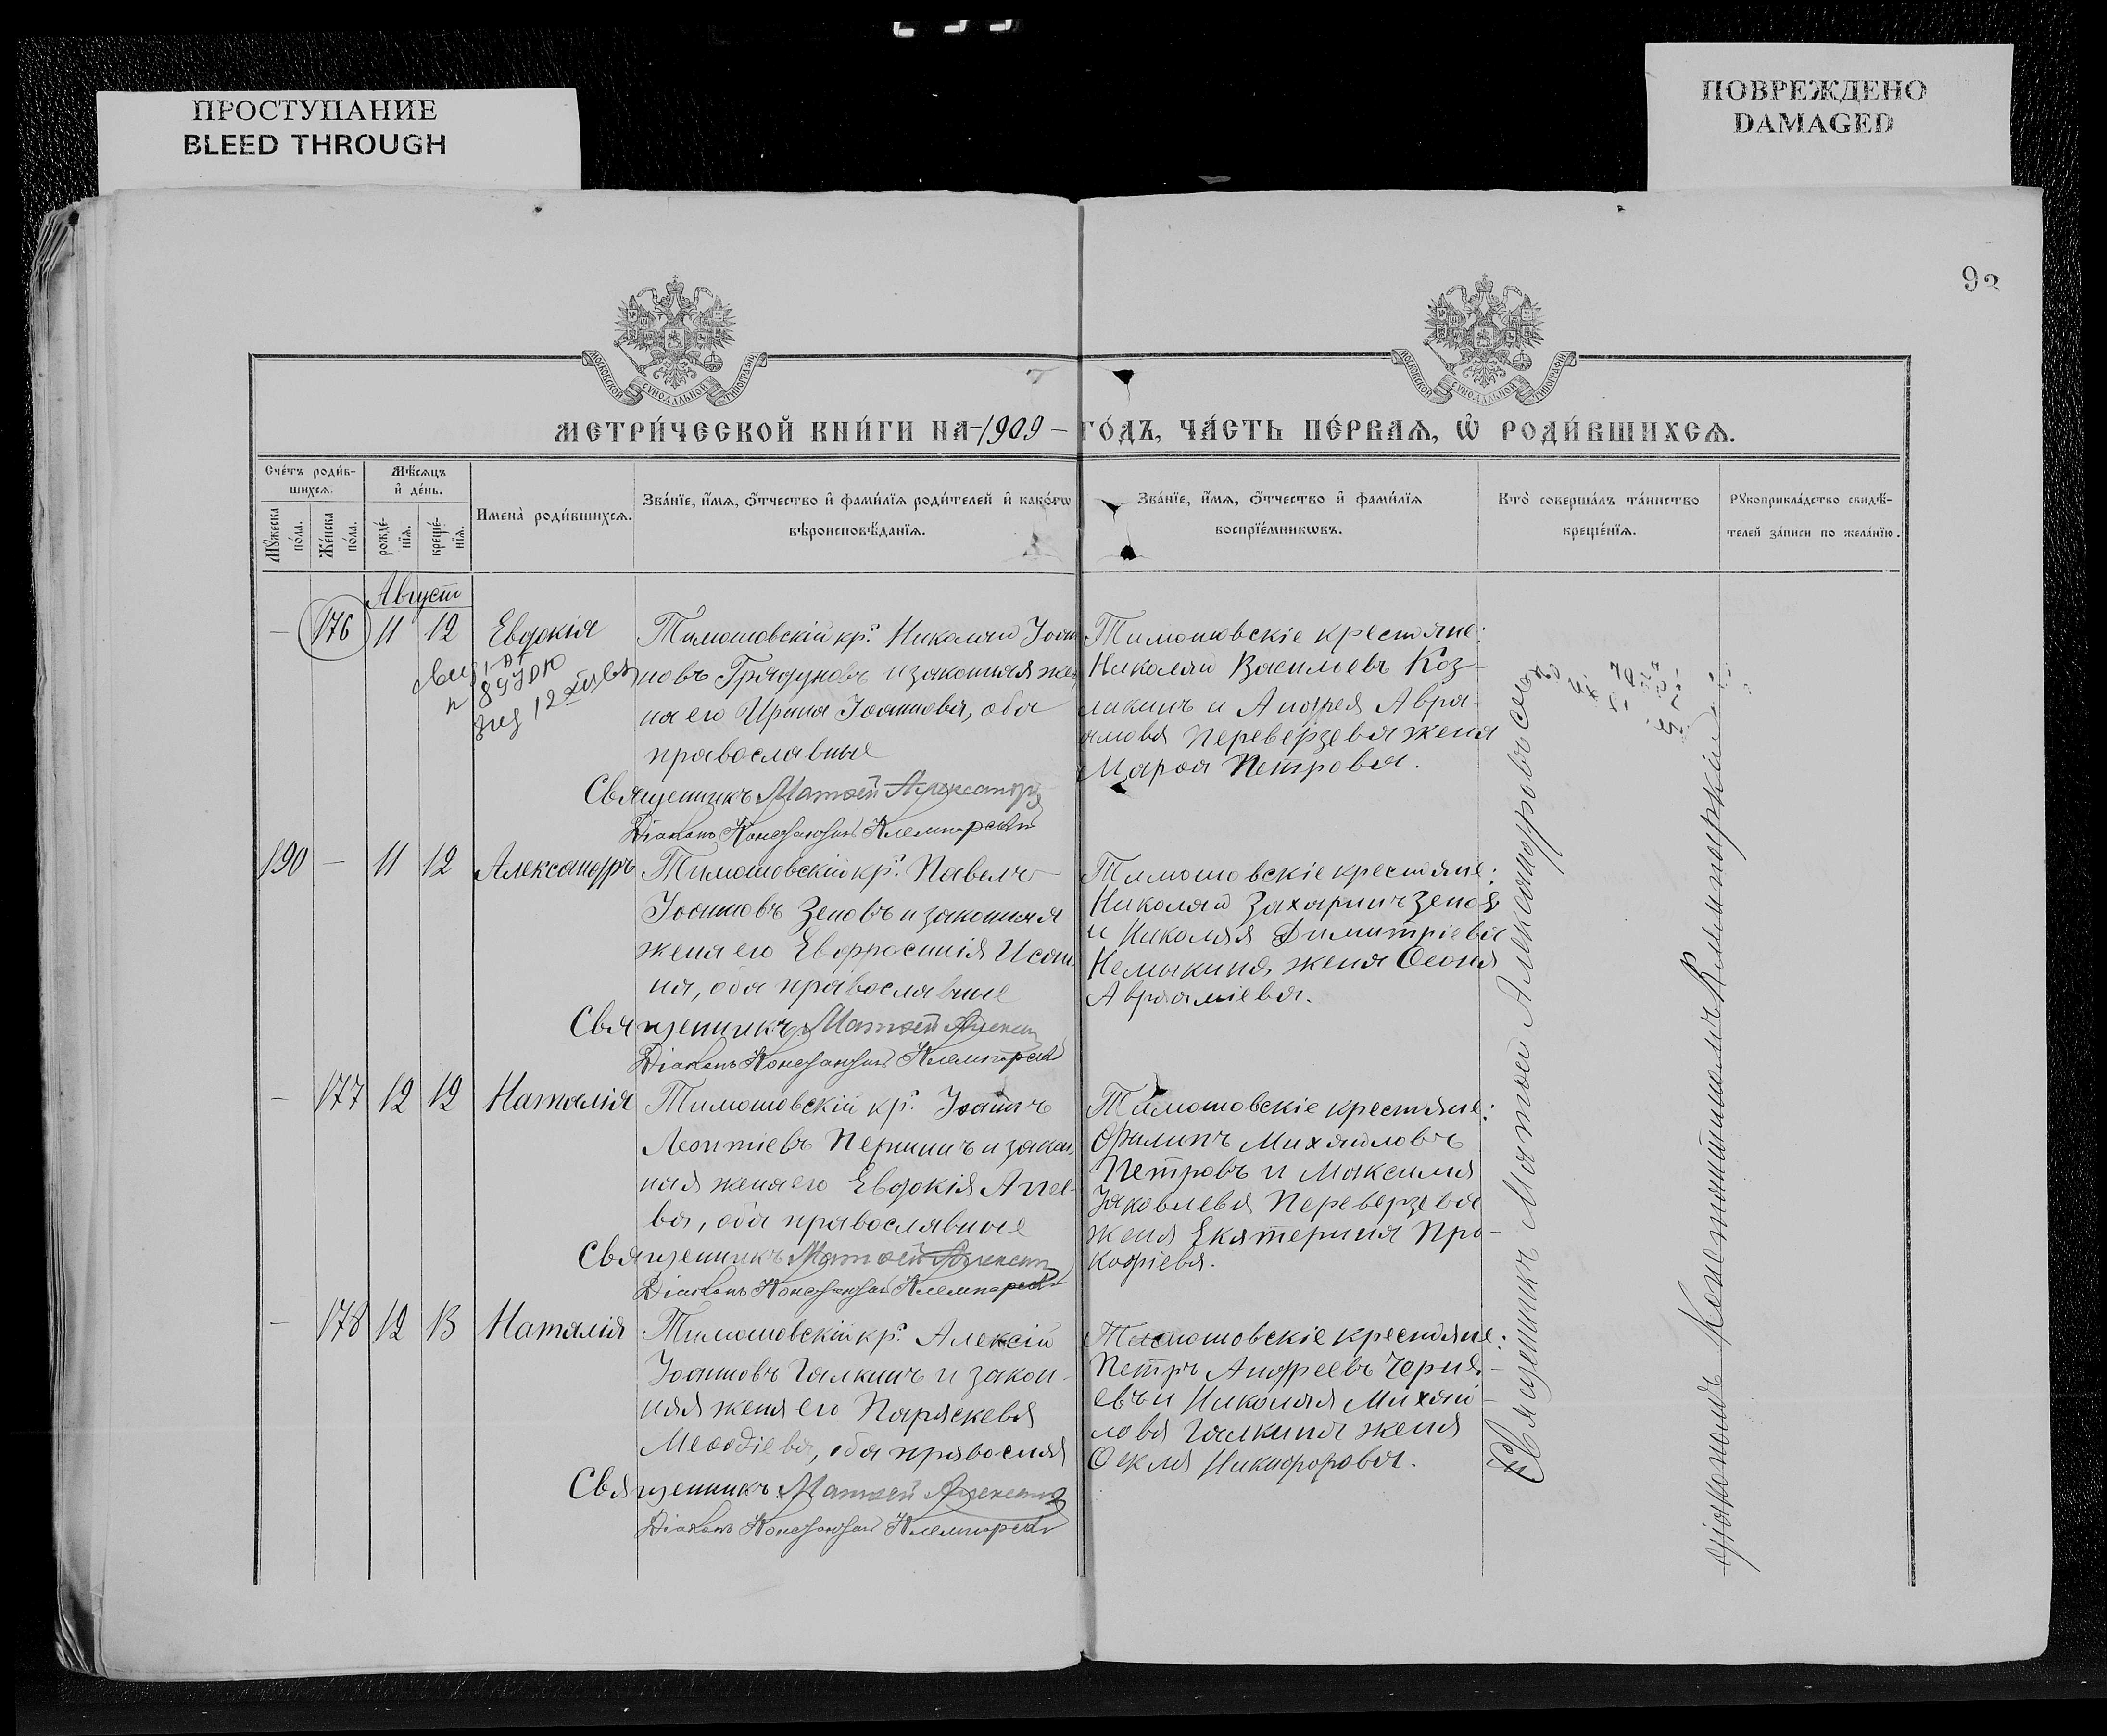 ПРОСТУПАНИЕ
BLEED THROUGH
ПОВРЕЖДЕНО
DAMAGED
92
МОСКОВСКОЙ СѴНОДАЛЬНОЙ ТИПОГРАФІИ
МОСКОВСКОЙ СѴНОДАЛЬНОЙ ТИПОГРАФІИ
МЕТРИ́ЧЕСКОЙ КНИ́ГИ НА -1909- ГО́ДЪ, ЧА́СТЬ ПЕ́РВАѦ, Ѡ҆ РОДИ́ВШИХСѦ.
Сче́тъ роди́в-
шихсѧ.
Мꙋ́жеска
по́ла.
Же́нска
по́ла.
Мѣ́сѧцъ
и҆ де́нь.
рожде́-
нїѧ.
креще́-
нїѧ.
И҆мена̀ роди́вшихсѧ.
Зва́нїе, и҆́мѧ, ѻ҆́тчество и҆ фами́лїѧ роди́телей и҆ како́гѡ
вѣроисповѣ́данїѧ.
Зва́нїе, и҆́мѧ, ѻ҆́тчество и҆ фами́лїѧ
воспрїе́мникѡвъ.
Кто̀ соверша́лъ та́инство
креще́нїѧ.
Рꙋкоприкла́дство свидѣ́-
телей за́писи по жела́нїю.
Августъ
— 176 11 12 Евдокія
Тимошовскій кр. Николай Іоан
новъ Грядуновъ и законная же
на его Ирина Іоаннова, оба
православные
Священникъ Матѳей Александр
Діаконъ Константинъ Клемпарскій
Тимошовскіе крестьяне:
Николай Васильевъ Коз-
ликинъ и Андрея Авра-
амова Переверзева жена
Марѳа Петрова.
190 — 11 12 Александръ
Тимошовскій кр. Павелъ
Іоанновъ Зеновъ и законная
жена его Евфросинія Исаи
на, оба православные
Священникъ Матѳей Алексан
Діаконъ Константинъ Клемпарскій
Тимошовскіе крестьяне:
Николай Захаринъ Зеновъ
и Николая Димитріева
Немыкина жена Ѳеона
Авраамiева.
— 177 12 12 Наталія
Тимошовскій кр. Іоаннъ
Леонтіевъ Першинъ и закон
ная жена его Евдокія Агее-
ва, оба православные
Священникъ Матѳей Алексан
Діаконъ Константинъ Клемпарскій
Тимошовскіе крестьяне:
Филипъ Михайловъ
Петровъ и Максима
Іаковлева Переверзева
жена Екатерина Про-
кофіева.
— 178 12 13 Наталія
Тимошовскій кр. Алексій
Іоанновъ Галкинъ и закон-
ная жена его Параскева
Меѳодіева, оба правосла
Священникъ Матѳей Алексан
Діаконъ Константинъ Клемпарскій
Тимошовскіе крестьяне:
Петръ Андреевъ Черня-
евъ и Николая Михай-
лова Галкина жена
Ѳекла Никифорова.
Священникъ Матѳей Александровъ съ
діакономъ Константиномъ Клемпарскимъ